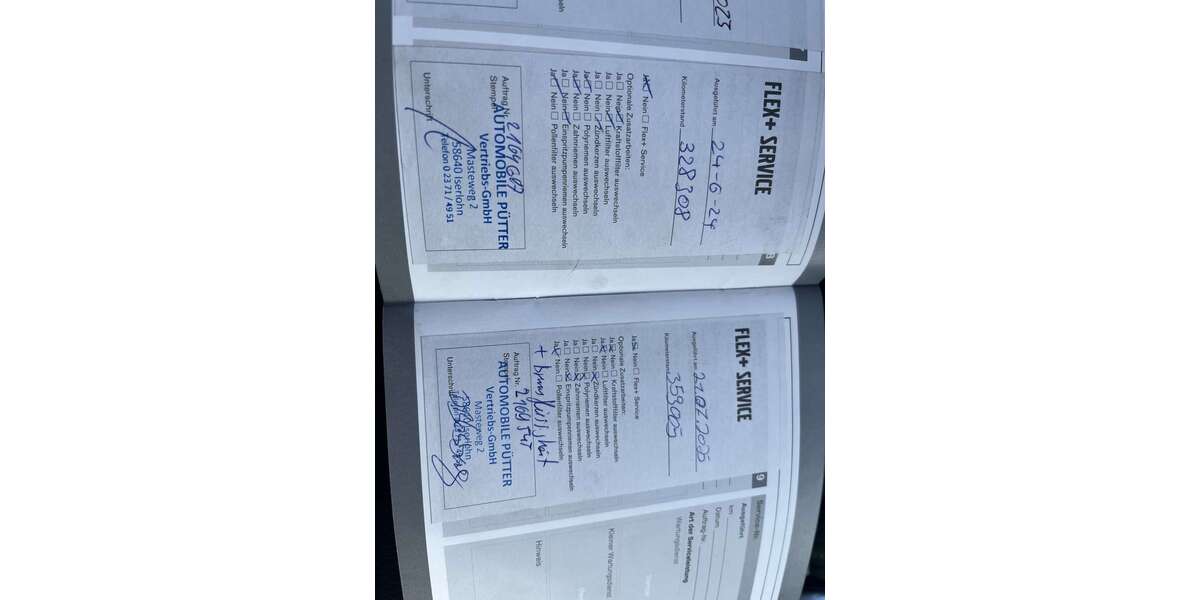 FLEX+ SERVICE
8
Ausgeführt am 24-6-24
Kilometerstand 328308
Ja Nein Flex+ Service
Optionale Zusatzarbeiten:
Ja Nein Kraftstofffilter auswechseln
Ja Nein Luftfilter auswechseln
Ja Nein Zündkerzen auswechseln
Ja Nein Polyriemen auswechseln
Ja Nein Zahnriemen auswechseln
Ja Nein Einspritzpumpenriemen auswechseln
Ja Nein Pollenfilter auswechseln
Auftrag Nr.
Stempel
AUTOMOBILE PÜTTER
Vertriebs-GmbH
Masteweg 2
58640 Iserlohn
Telefon 0 23 71 / 49 51
Unterschrift
FLEX+ SERVICE
9
Ausgeführt am
Kilometerstand 359005
Ja Nein Flex+ Service
Optionale Zusatzarbeiten:
Ja Nein Kraftstofffilter auswechseln
Ja Nein Luftfilter auswechseln
Ja Nein Zündkerzen auswechseln
Ja Nein Polyriemen auswechseln
Ja Nein Zahnriemen auswechseln
Ja Nein Einspritzpumpenriemen auswechseln
Ja Nein Pollenfilter auswechseln
Auftrag Nr.
AUTOMOBILE PÜTTER
Vertriebs-GmbH
Masteweg 2
58640 Iserlohn
Unterschrift
Service-Nr.
Ausgeführt
km
Datum
Auftrag-Nr.
Art der Serviceleistung
Wartungsdienst
Kleiner Wartungsdienst
Hinweis